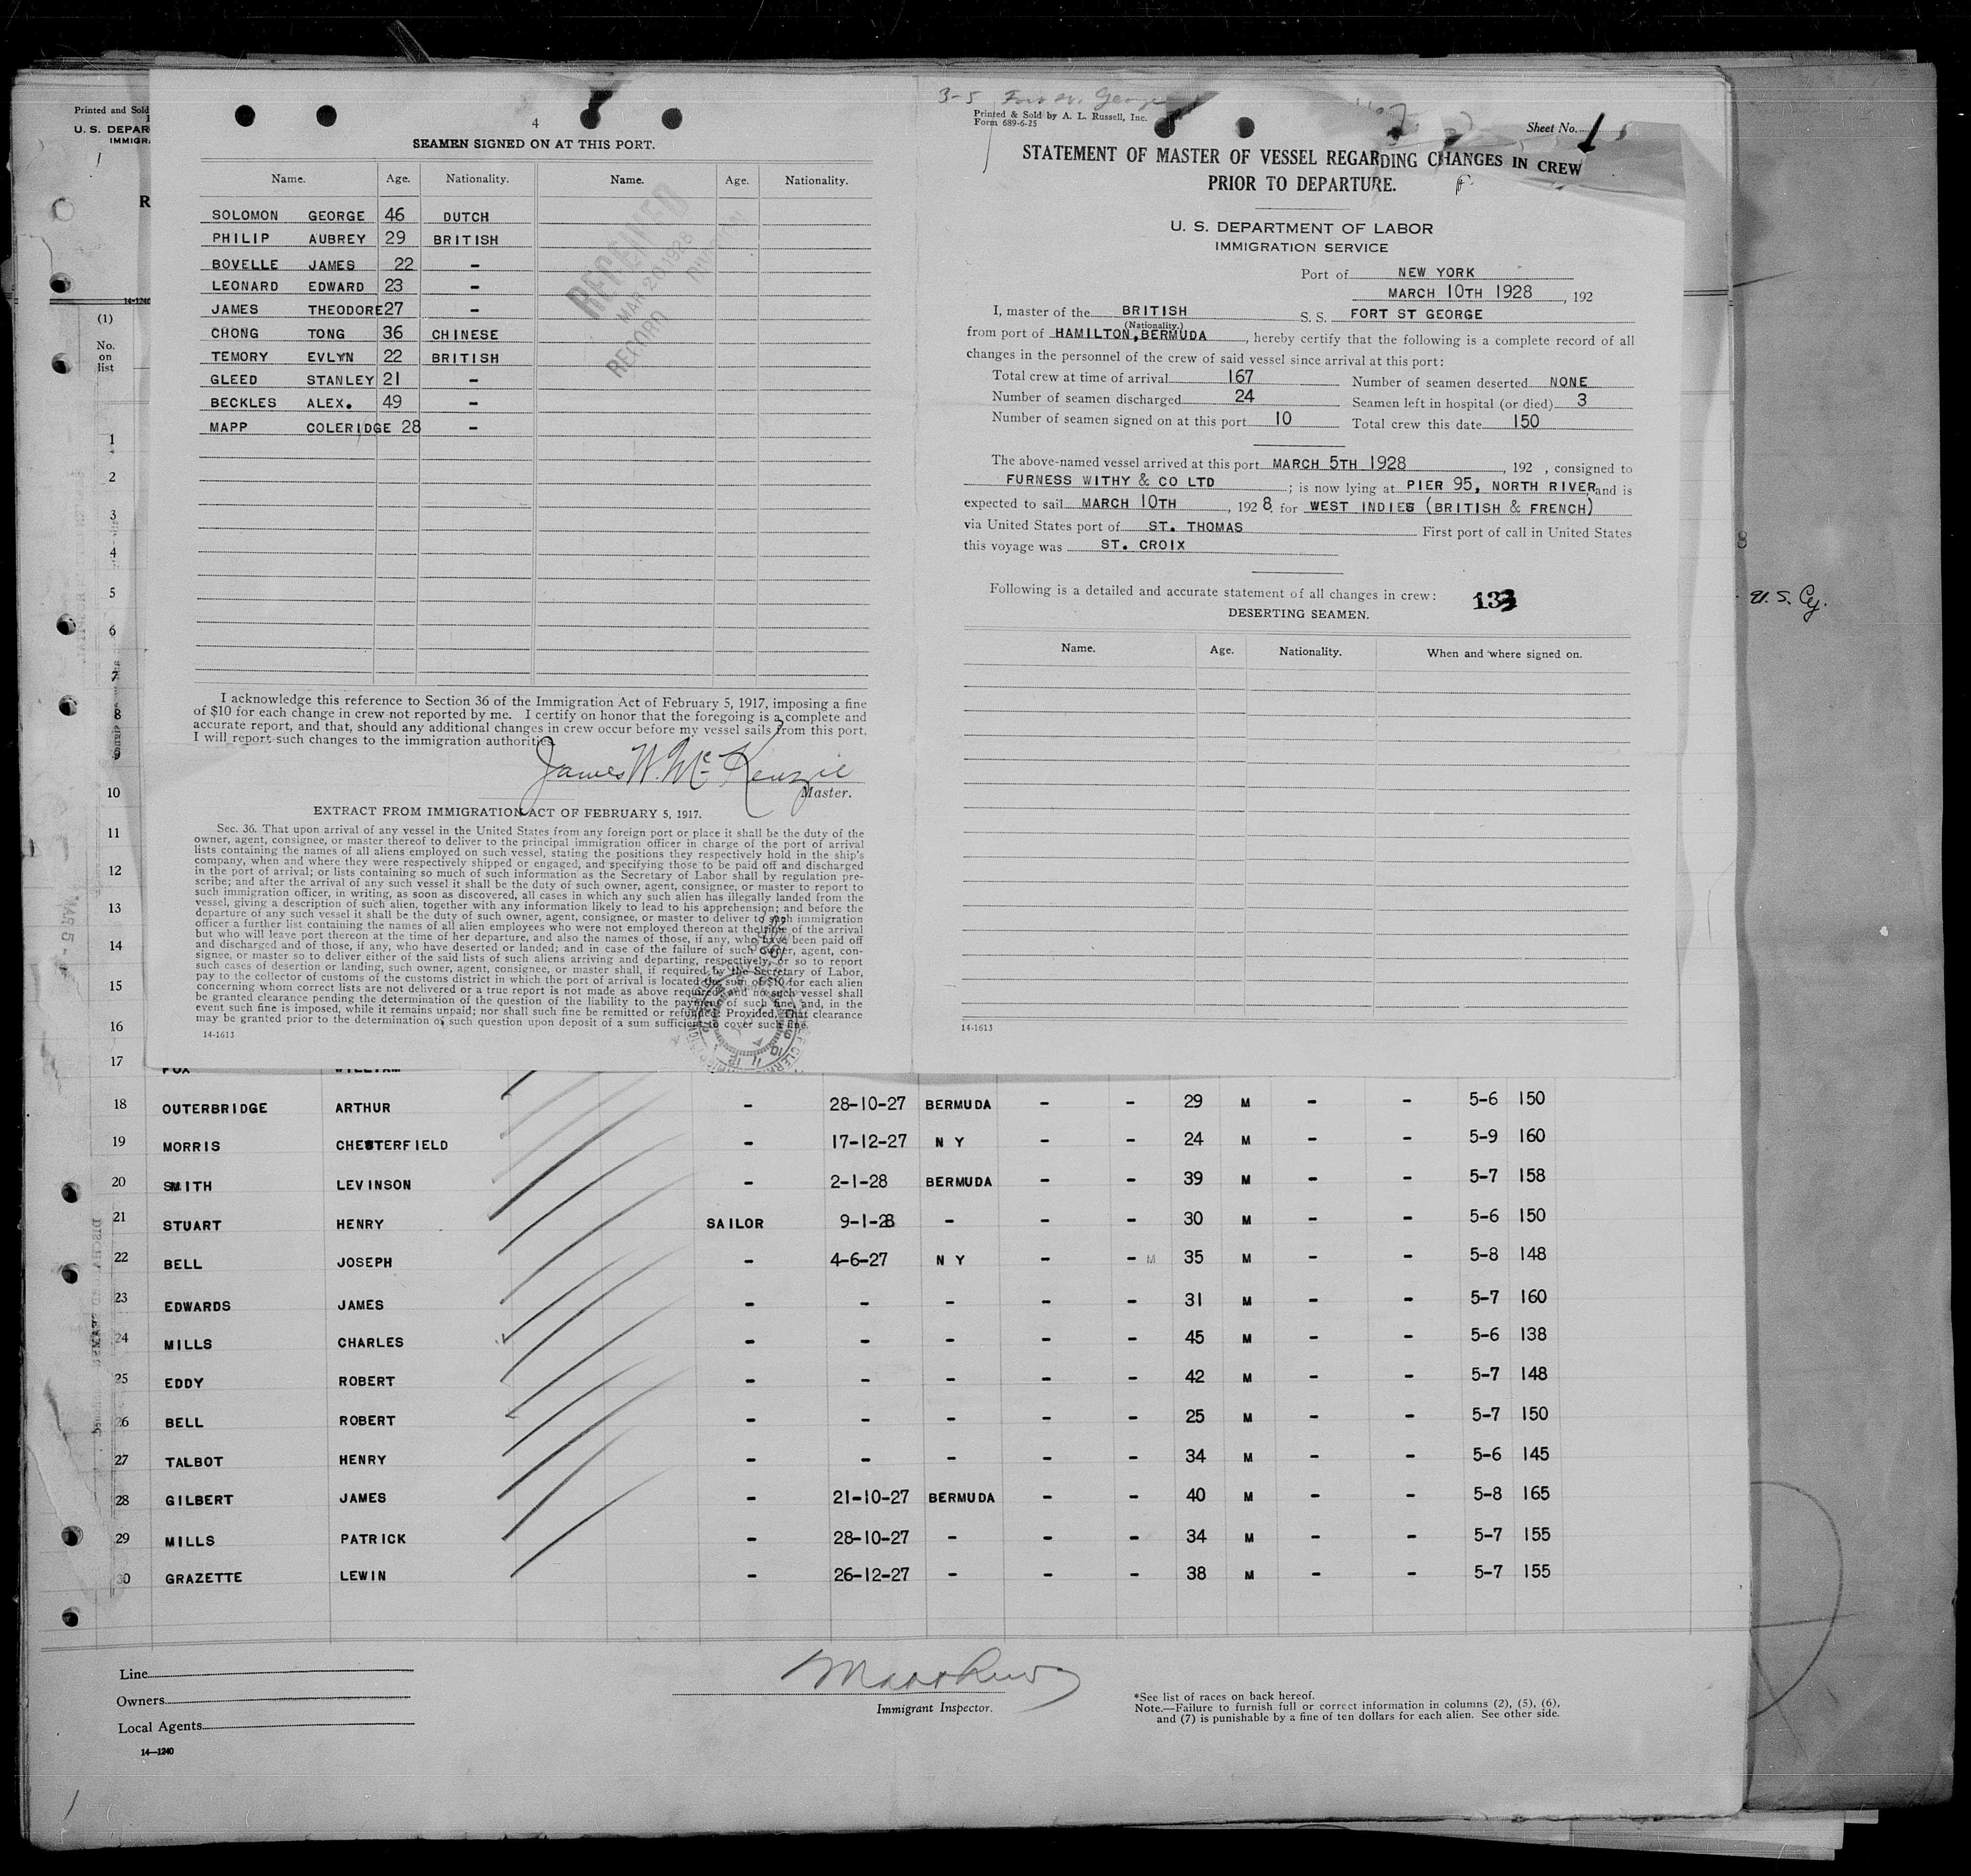 Printed and Sold
U. S. DEPAR
IMMIGRA
R
14-1240
(1)
No.
on
list
1
2
3
4
5
6
7
8
9
10
11
12
13
14
15
16
17
4
SEAMEN SIGNED ON AT THIS PORT.
Name. Age. Nationality. Name. Age. Nationality.
SOLOMON GEORGE 46 DUTCH
PHILIP AUBREY 29 BRITISH
BOVELLE JAMES 22 -
LEONARD EDWARD 23 -
JAMES THEODORE 27 -
CHONG TONG 36 CHINESE
TEMORY EVLYN 22 BRITISH
GLEED STANLEY 21 -
BECKLES ALEX. 49 -
MAPP COLERIDGE 28 -
RECEIVED
MAR 20 1928
RECORD DIVISION
I acknowledge this reference to Section 36 of the Immigration Act of February 5, 1917, imposing a fine
of $10 for each change in crew not reported by me. I certify on honor that the foregoing is a complete and
accurate report, and that, should any additional changes in crew occur before my vessel sails from this port,
I will report such changes to the immigration authorities.
James W. McKenzie
Master.
EXTRACT FROM IMMIGRATION ACT OF FEBRUARY 5, 1917.
Sec. 36. That upon arrival of any vessel in the United States from any foreign port or place it shall be the duty of the
owner, agent, consignee, or master thereof to deliver to the principal immigration officer in charge of the port of arrival
lists containing the names of all aliens employed on such vessel, stating the positions they respectively hold in the ship's
company, when and where they were respectively shipped or engaged, and specifying those to be paid off and discharged
in the port of arrival; or lists containing so much of such information as the Secretary of Labor shall by regulation pre-
scribe; and after the arrival of any such vessel it shall be the duty of such owner, agent, consignee, or master to report to
such immigration officer, in writing, as soon as discovered, all cases in which any such alien has illegally landed from the
vessel, giving a description of such alien, together with any information likely to lead to his apprehension; and before the
departure of any such vessel it shall be the duty of such owner, agent, consignee, or master to deliver to such immigration
officer a further list containing the names of all alien employees who were not employed thereon at the time of the arrival
but who will leave port thereon at the time of her departure, and also the names of those, if any, who have been paid off
and discharged and of those, if any, who have deserted or landed; and in case of the failure of such owner, agent, con-
signee, or master so to deliver either of the said lists of such aliens arriving and departing, respectively, or so to report
such cases of desertion or landing, such owner, agent, consignee, or master shall, if required by the Secretary of Labor,
pay to the collector of customs of the customs district in which the port of arrival is located the sum of $10 for each alien
concerning whom correct lists are not delivered or a true report is not made as above required; and no such vessel shall
be granted clearance pending the determination of the question of the liability to the payment of such fine, and, in the
event such fine is imposed, while it remains unpaid; nor shall such fine be remitted or refunded: Provided, That clearance
may be granted prior to the determination of such question upon deposit of a sum sufficient to cover such fine.
14-1613
3-5 Fort St. George
Printed & Sold by A. L. Russell, Inc.
Form 689-6-25
Sheet No. 1
STATEMENT OF MASTER OF VESSEL REGARDING CHANGES IN CREW
PRIOR TO DEPARTURE.
U. S. DEPARTMENT OF LABOR
IMMIGRATION SERVICE
Port of NEW YORK
MARCH 10TH 1928, 192
I, master of the BRITISH S. S. FORT ST GEORGE
(Nationality.)
from port of HAMILTON, BERMUDA, hereby certify that the following is a complete record of all
changes in the personnel of the crew of said vessel since arrival at this port:
Total crew at time of arrival 167 Number of seamen deserted NONE
Number of seamen discharged 24 Seamen left in hospital (or died) 3
Number of seamen signed on at this port 10 Total crew this date 150
The above-named vessel arrived at this port MARCH 5TH 1928, 192 , consigned to
FURNESS WITHY & CO LTD; is now lying at PIER 95, NORTH RIVER and is
expected to sail MARCH 10TH, 192 8. for WEST INDIES (BRITISH & FRENCH)
via United States port of ST. THOMAS First port of call in United States
this voyage was ST. CROIX
Following is a detailed and accurate statement of all changes in crew: 133
DESERTING SEAMEN.
Name. Age. Nationality. When and where signed on.
14-1613
U. S. Cy.
FOX WILLIAM
18 OUTERBRIDGE ARTHUR - 28-10-27 BERMUDA - - 29 M - - 5-6 150
19 MORRIS CHESTERFIELD - 17-12-27 N Y - - 24 M - - 5-9 160
20 SMITH LEVINSON - 2-1-28 BERMUDA - - 39 M - - 5-7 158
21 STUART HENRY SAILOR 9-1-28 - - - 30 M - - 5-6 150
22 BELL JOSEPH - 4-6-27 N Y - - M 35 M - - 5-8 148
23 EDWARDS JAMES - - - - - 31 M - - 5-7 160
24 MILLS CHARLES - - - - - 45 M - - 5-6 138
25 EDDY ROBERT - - - - - 42 M - - 5-7 148
26 BELL ROBERT - - - - - 25 M - - 5-7 150
27 TALBOT HENRY - - - - - 34 M - - 5-6 145
28 GILBERT JAMES - 21-10-27 BERMUDA - - 40 M - - 5-8 165
29 MILLS PATRICK - 28-10-27 - - - 34 M - - 5-7 155
30 GRAZETTE LEWIN - 26-12-27 - - - 38 M - - 5-7 155
Line
Owners
Local Agents
14—1240
Matthews
Immigrant Inspector.
*See list of races on back hereof.
Note.—Failure to furnish full or correct information in columns (2), (5), (6),
and (7) is punishable by a fine of ten dollars for each alien. See other side.